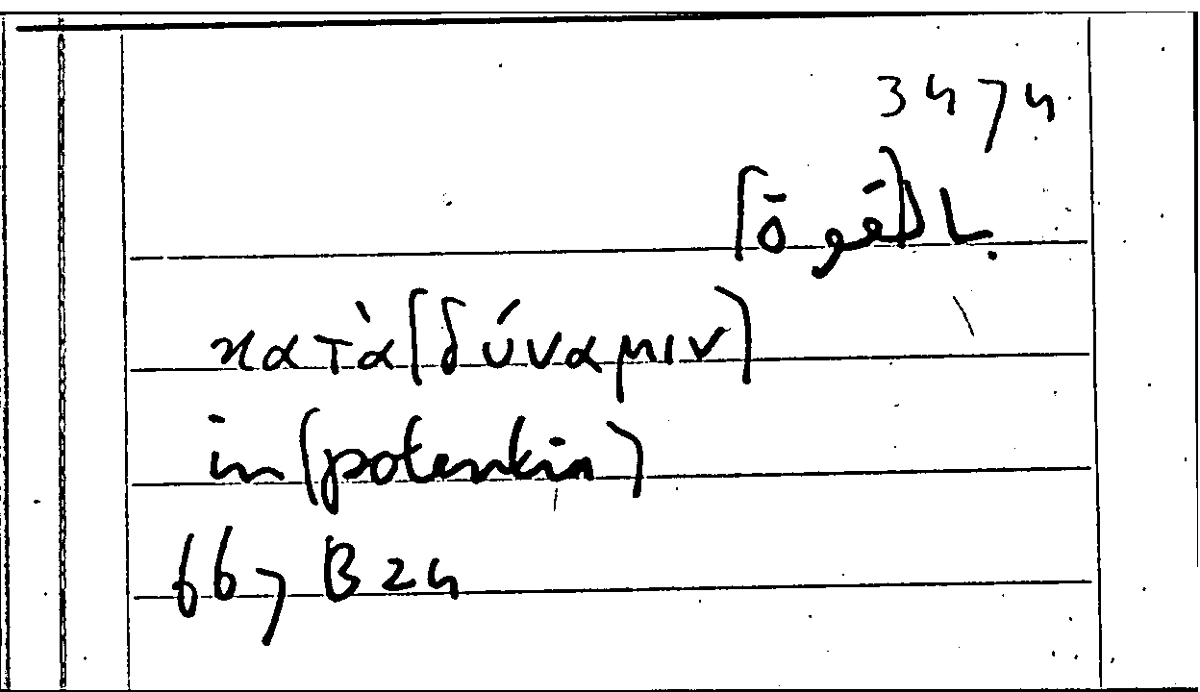 3474
κατὰ [δύναμιν]
in [potentia]
667 B 24